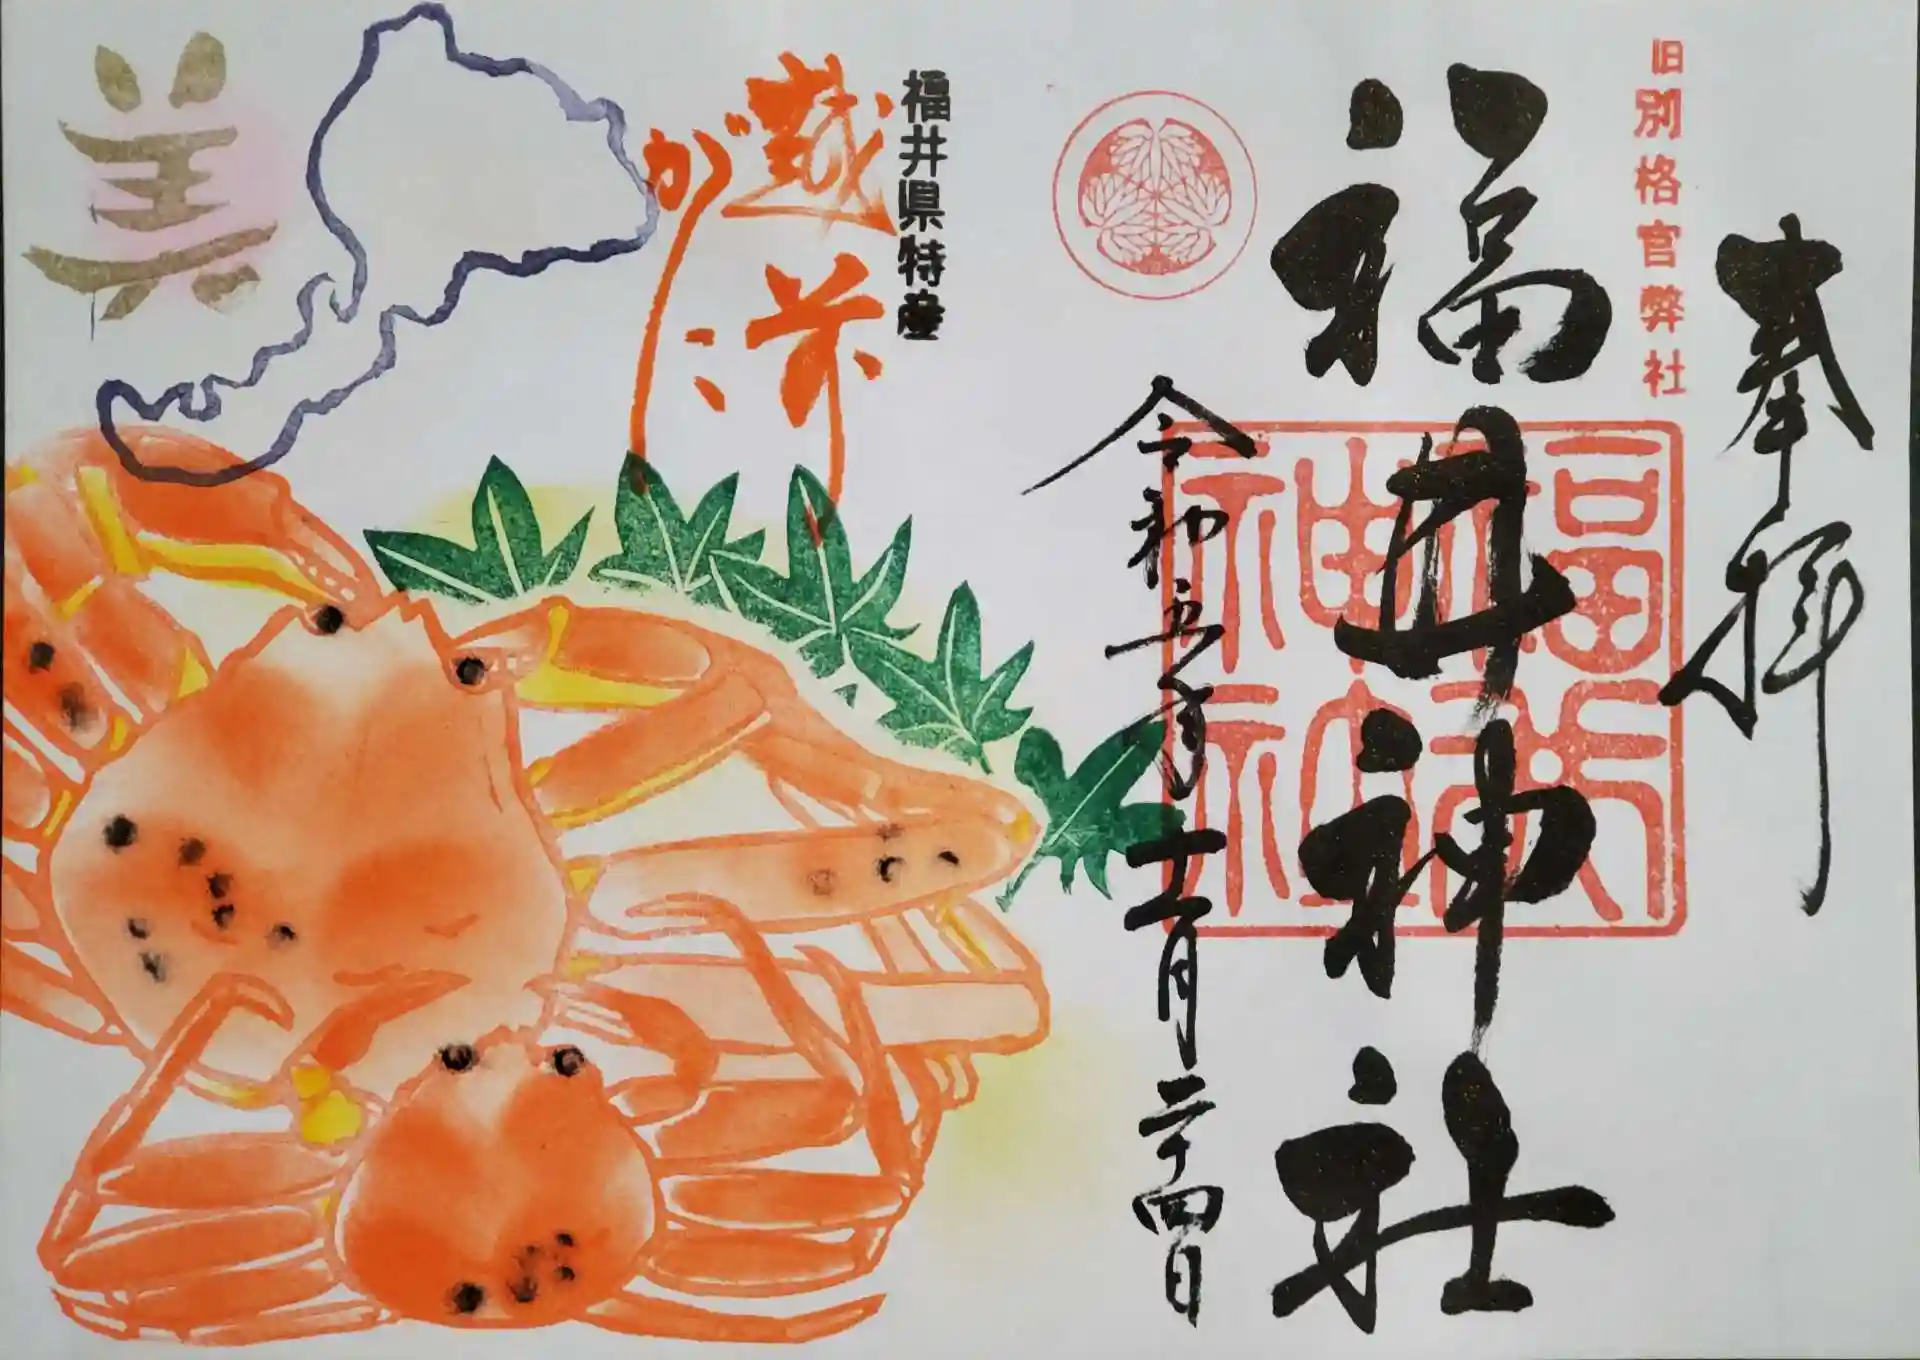 奉拝
旧別格官弊社
福井神社
令和五年十一月二十四日
福井県特産
越前
がに
美